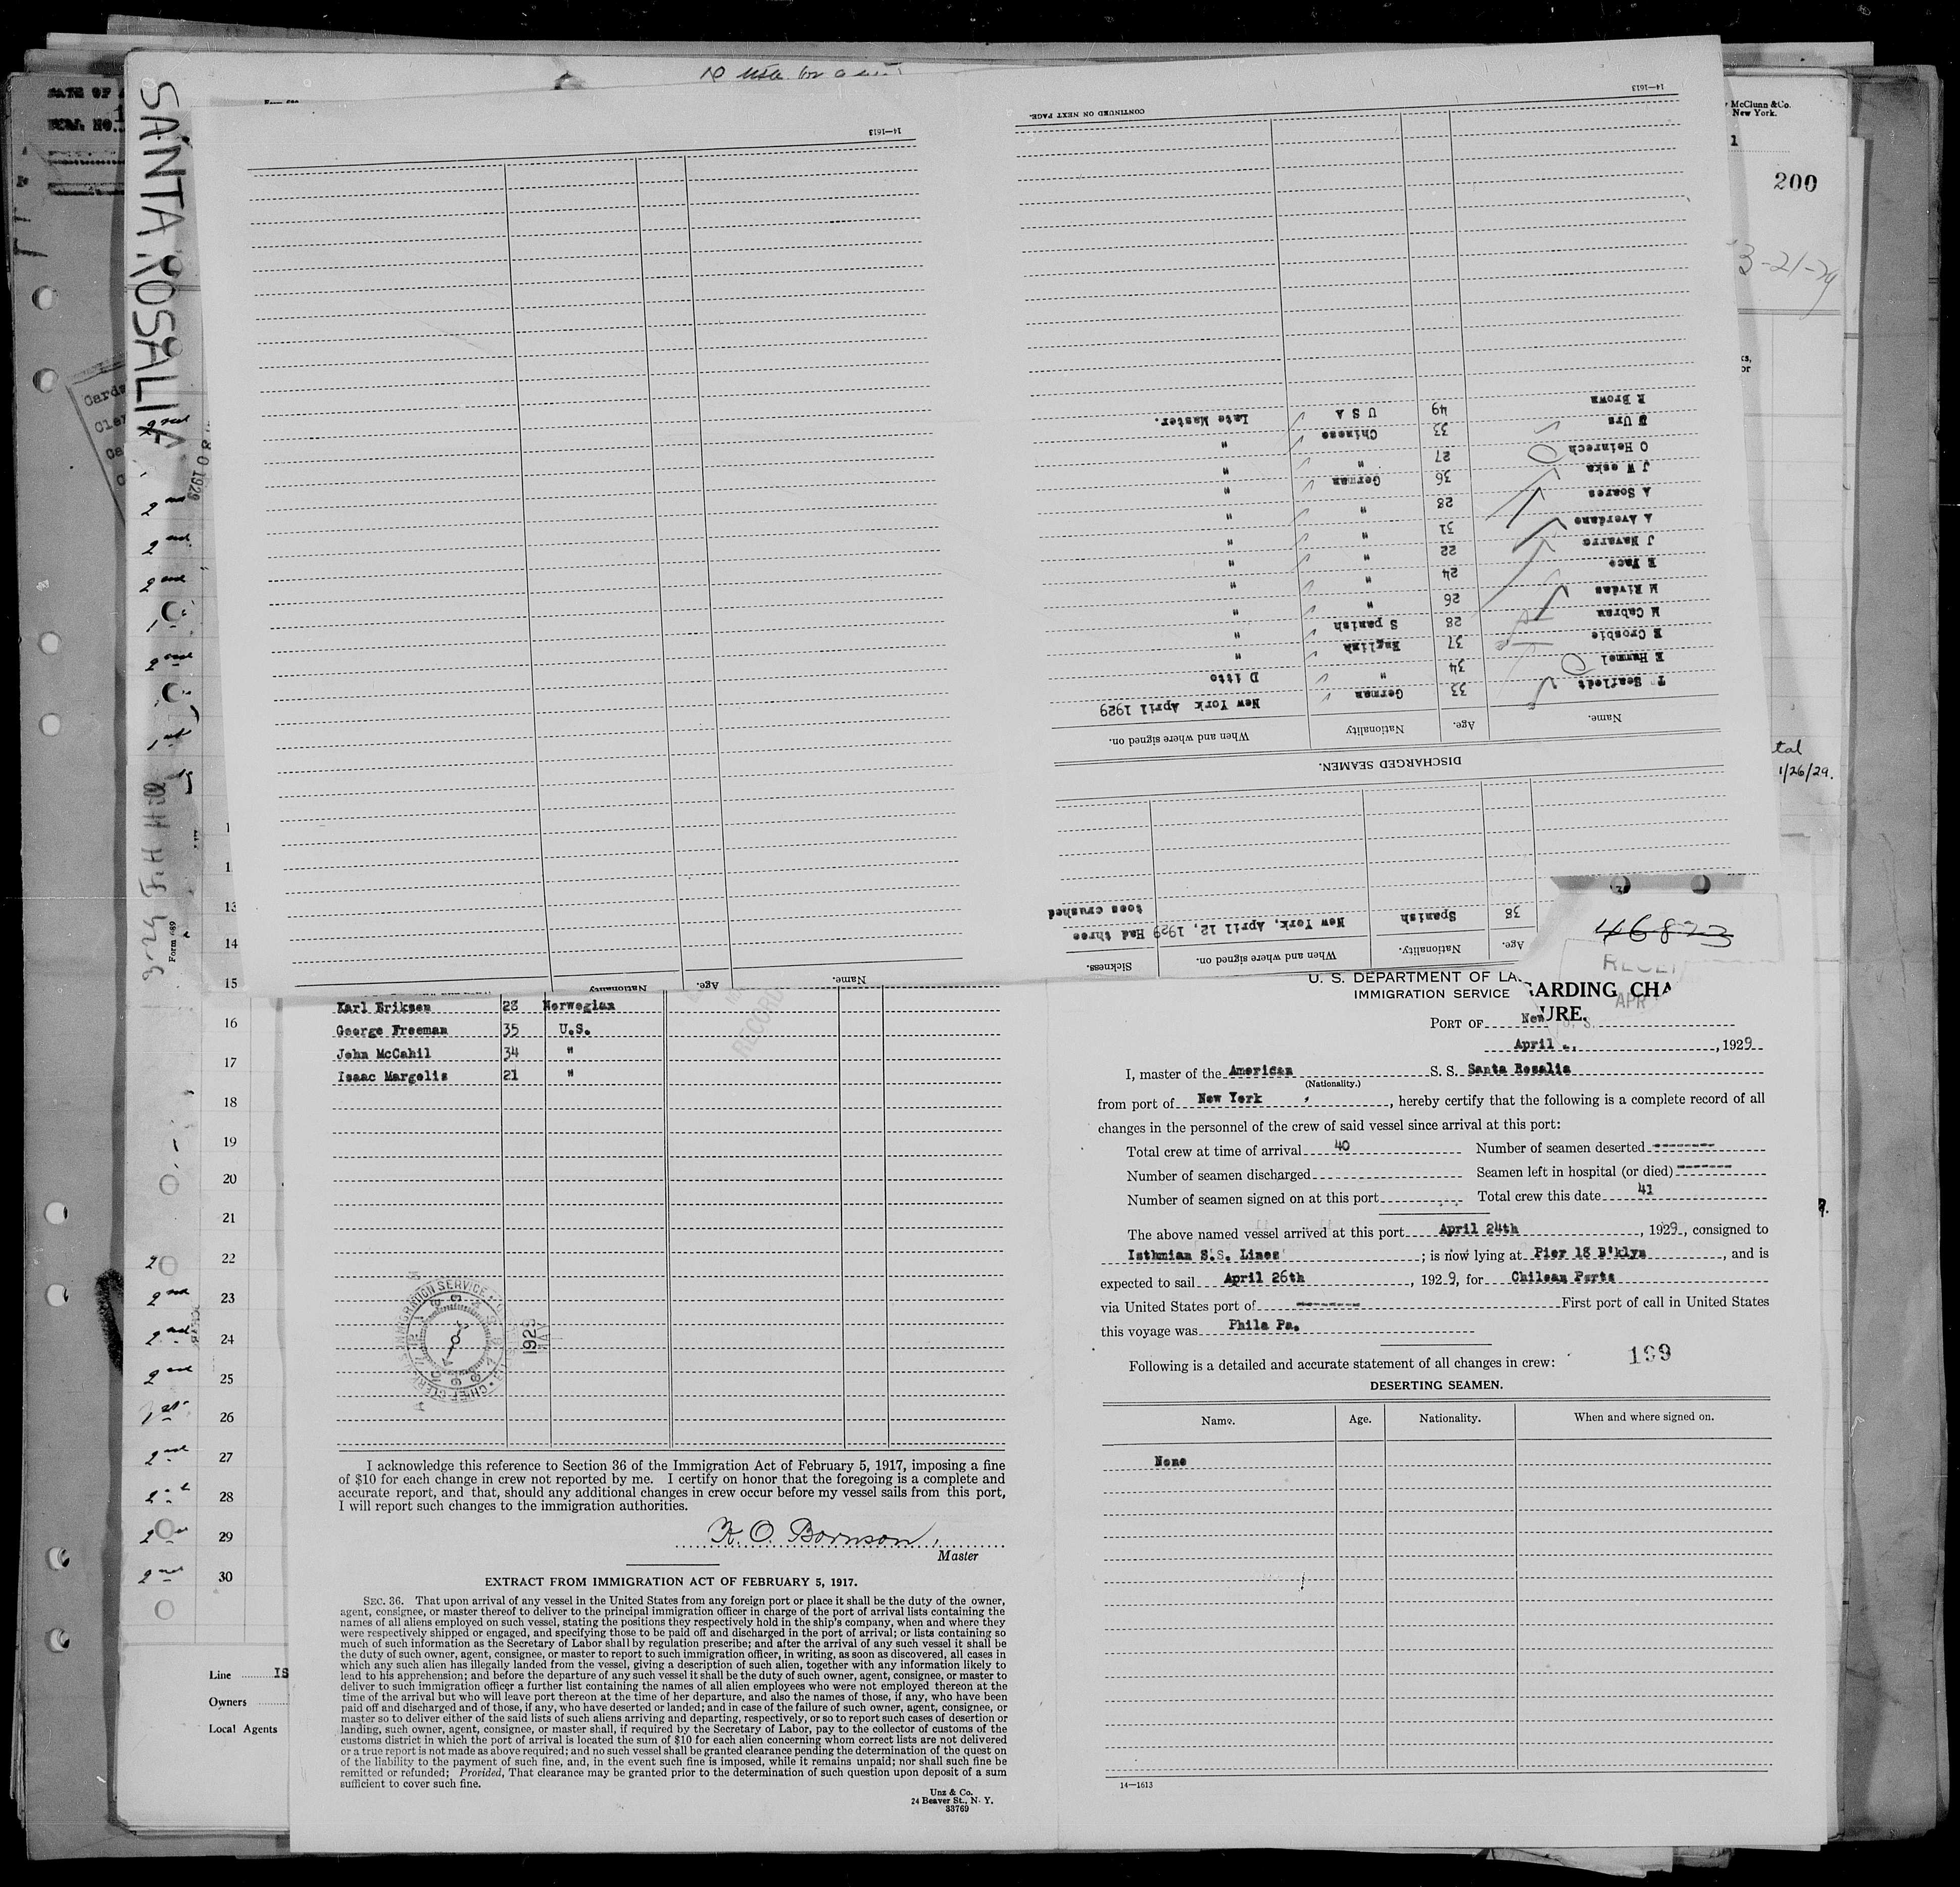 SANTA ROSALIA
3-29 F.H. Hill
Form 689
McClunn & Co.
New York.
1
200
3-21-29
1/26/29.
14—1613
Name.
Age.
Nationality
14—1613
CONTINUED ON NEXT PAGE.
Sickness.
When and where signed on.
Nationality.
Age.
Had three New York, April 12, 1929 Spanish 38
toes crushed
DISCHARGED SEAMEN.
Name. Age. Nationality When and where signed on.
T Seafledt 33 German New York April 1929
E Hummel 34 " Ditto
E Crosbie 37 English "
M Cabran 28 Spanish "
M Rivdas 26 " "
E Pace 24 " "
J Navarro 22 " "
A Averdano 31 " "
A Soares 28 " "
J W eska 36 German "
O Heinrech 27 " "
Urs 33 Chinese "
R Brown 49 U S A Late Master.
46823
13
14
15
16
17
18
19
20
21
22
23
24
25
26
27
28
29
30
Line IS
Owners
Local Agents
Karl Eriksen 28 Norwegian
George Freeman 35 U.S.
John McCahil 34 "
Isaac Margolis 21 "
RECORD
IMMIGRATION SERVICE
CHIEF CLERK
1929
MAY
I acknowledge this reference to Section 36 of the Immigration Act of February 5, 1917, imposing a fine
of $10 for each change in crew not reported by me. I certify on honor that the foregoing is a complete and
accurate report, and that, should any additional changes in crew occur before my vessel sails from this port,
I will report such changes to the immigration authorities.
K. O. Bornson,
Master
EXTRACT FROM IMMIGRATION ACT OF FEBRUARY 5, 1917.
SEC. 36. That upon arrival of any vessel in the United States from any foreign port or place it shall be the duty of the owner,
agent, consignee, or master thereof to deliver to the principal immigration officer in charge of the port of arrival lists containing the
names of all aliens employed on such vessel, stating the positions they respectively hold in the ship's company, when and where they
were respectively shipped or engaged, and specifying those to be paid off and discharged in the port of arrival; or lists containing so
much of such information as the Secretary of Labor shall by regulation prescribe; and after the arrival of any such vessel it shall be
the duty of such owner, agent, consignee, or master to report to such immigration officer, in writing, as soon as discovered, all cases in
which any such alien has illegally landed from the vessel, giving a description of such alien, together with any information likely to
lead to his apprehension; and before the departure of any such vessel it shall be the duty of such owner, agent, consignee, or master to
deliver to such immigration officer a further list containing the names of all alien employees who were not employed thereon at the
time of the arrival but who will leave port thereon at the time of her departure, and also the names of those, if any, who have been
paid off and discharged and of those, if any, who have deserted or landed; and in case of the failure of such owner, agent, consignee, or
master so to deliver either of the said lists of such aliens arriving and departing, respectively, or so to report such cases of desertion or
landing, such owner, agent, consignee, or master shall, if required by the Secretary of Labor, pay to the collector of customs of the
customs district in which the port of arrival is located the sum of $10 for each alien concerning whom correct lists are not delivered
or a true report is not made as above required; and no such vessel shall be granted clearance pending the determination of the quest on
of the liability to the payment of such fine, and, in the event such fine is imposed, while it remains unpaid; nor shall such fine be
remitted or refunded; Provided, That clearance may be granted prior to the determination of such question upon deposit of a sum
sufficient to cover such fine.
Unz & Co.
24 Beaver St., N. Y.
33769
U. S. DEPARTMENT OF LA
IMMIGRATION SERVICE
ARDING CHA
URE.
APR
PORT OF New
April , 1929
I, master of the American S. S. Santa Rosalia
(Nationality.)
from port of New York , hereby certify that the following is a complete record of all
changes in the personnel of the crew of said vessel since arrival at this port:
Total crew at time of arrival 40 Number of seamen deserted --------
Number of seamen discharged Seamen left in hospital (or died) --------
Number of seamen signed on at this port Total crew this date 41
The above named vessel arrived at this port April 24th , 1929, consigned to
Isthmian S.S. Lines ; is now lying at Pier 18 B'klyn , and is
expected to sail April 26th , 1929, for Chilean Ports
via United States port of -------- First port of call in United States
this voyage was Phila Pa.
Following is a detailed and accurate statement of all changes in crew:
199
DESERTING SEAMEN.
Name. Age. Nationality. When and where signed on.
None
14—1613